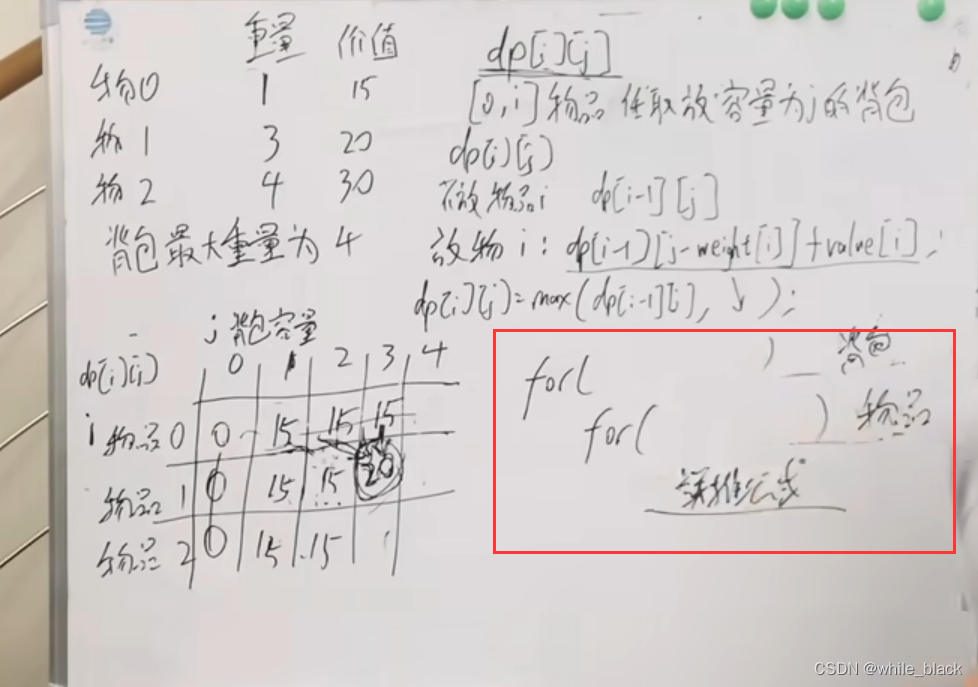 重量 价值
物品0 1 15
物 1 3 20
物 2 4 30
背包最大重量为 4
dp[i][j]
[0,i]物品任取放容量为j的背包
dp[i][j]
不放物品i dp[i-1][j]
放物i: dp[i-1][j-weight[i]]+value[i];
dp[i][j]=max(dp[i-1][j], ↓ );
j 背包容量
dp[i][j] 0 1 2 3 4
i 物品0 0 15 15 15
物品1 0 15 15 20
物品2 0 15 15
for( ) 背包
for( ) 物品
递推公式
CSDN @while_black